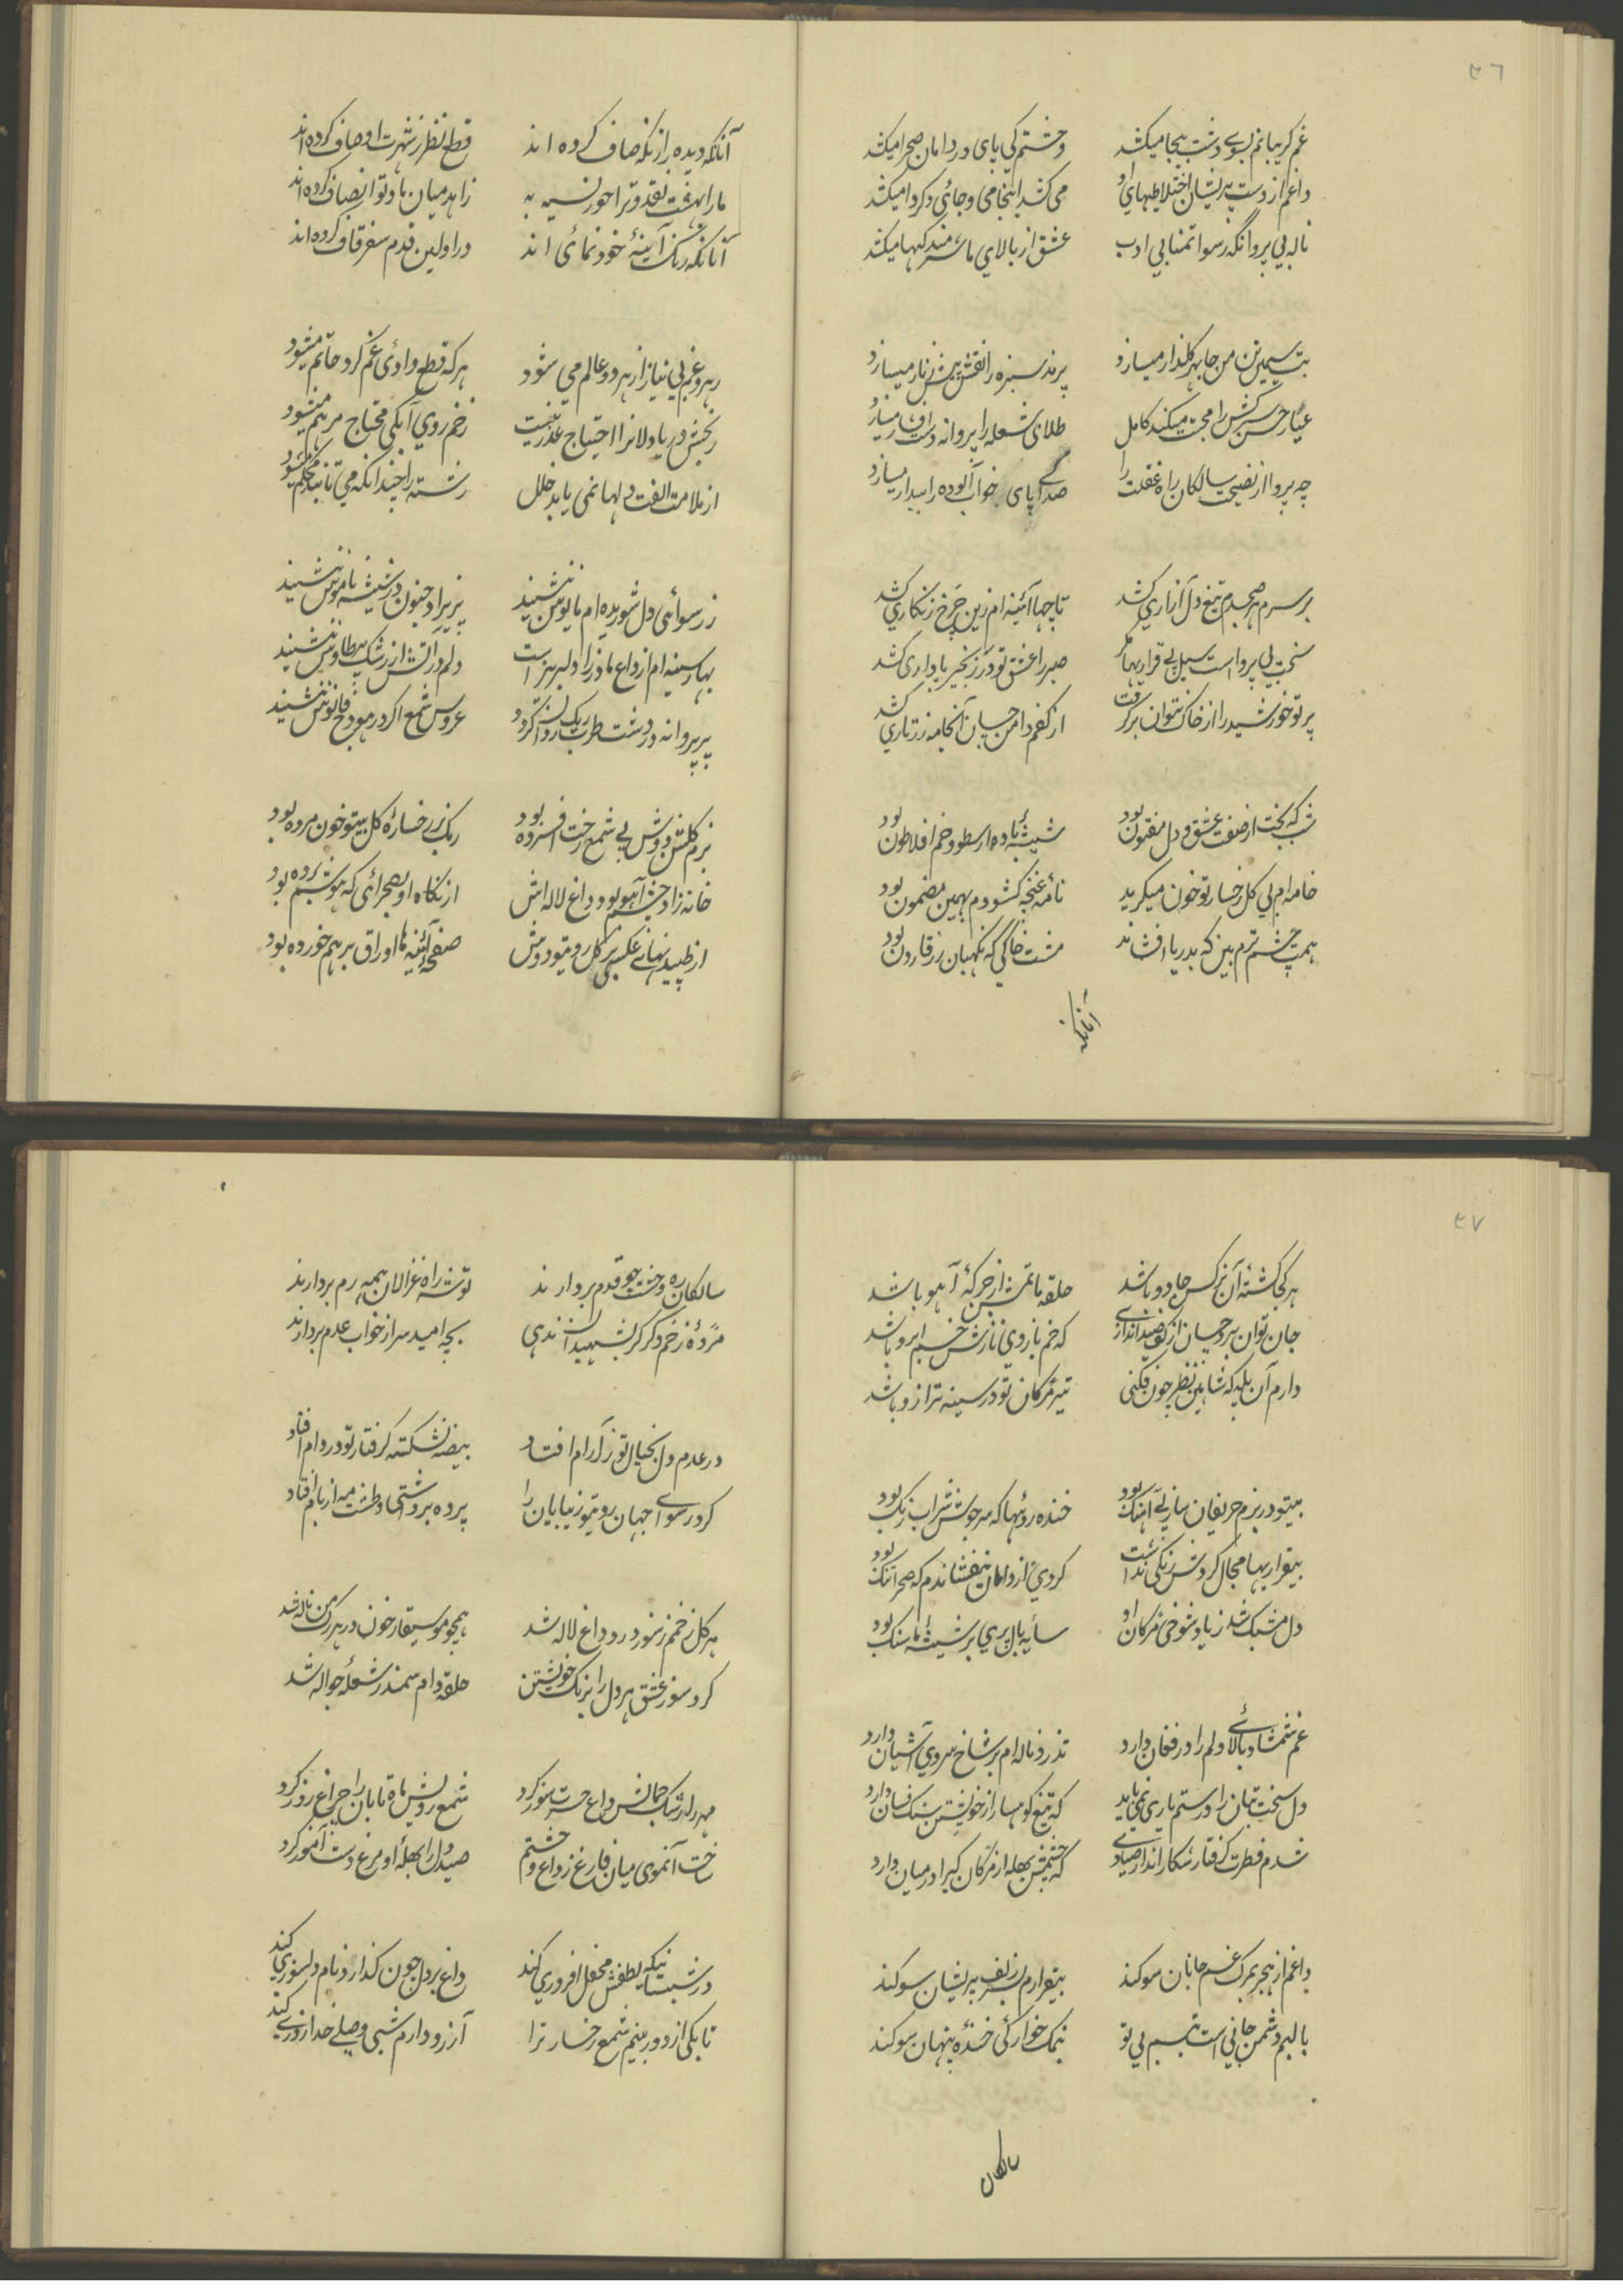 ٤٦
غم گریبانم بسوے دشت هیجا میکشد
وحشتم کی پای در دامان صحرا میکشد
داغم از دست پریشان اختلاطیهای او
می کشد اینجا می و جائی دکر وا میکشد
ناله بی پروا نکه رسوا تمنا بی ادب
عشق از بالای ما شرمندکیها میکشد
بت سیمین تن من جا بهر کلذار میسازد
پرند سبزه را نقش پیش زنار میسازد
عیار حسن سرکش را محبت میکند کامل
طلای شعله را پروانه دست افشار میسازد
چه پروا از نصیحت سالکان راه غفلت را
صدای پای خواب آلوده را بیدار میسازد
بر سرم هر صبحدم تیغ دل آزاری کشد
تا چها آئینه ام زین چرخ زنکاری کشد
سخت بی پرواست سیل بی قراریها مکر
صبر را عشق تو در زنجیر پا داری کشد
پرتو خورشید را از خاک نتوان برکرفت
از کفم دامن چسان آن جامه زرتاری کشد
شب که بختت از صفت عشق و دل مفتون بود
شیشۀ باده ارسطو و خم افلاطون بود
خامه ام بی کل رخسار تو خون میکرید
نامۀ غنچه کشودم بهمین مضمون بود
همت چشم ترم بین که بدریا افشاند
مشت خاکی که نکهبان زر قارون بود
آنانکه
آنانکه دیده را ز نکه صاف کرده اند
قطع نظر ز شهرت اوصاف کرده اند
ما را بهشت نقد و ترا حور نسیه به
زاهد میان ما و تو انصاف کرده اند
آنانکه زنک آینۀ خود نمائی اند
در اولین قدم سفر قاف کرده اند
رهرو غم بی نیاز از هر دو عالم می شود
هر که قطع وادئ غم کرد حاتم میشود
رنجش دریا دلانرا احتیاج عذر نیست
زخم روی آب کی محتاج مرهم میشود
از ملامت الفت دلها نمی یابد خلل
رشته را چندانکه می تابند محکم میشود
ز رسوائی دل شوریده ام مایوس ننشیند
پریزاد جنون در شیشه ناموس ننشیند
بهار سینه ام از داغ مادرزاد لبریز است
دلم در آتش از رشک پر طاوس ننشیند
پر پروانه در دشت طرب ریک روان کردد
عروس شمع اکر در هودج فانوس ننشیند
بزم کلشن دوش بی شمع رخت افسرده بود
رنک بر رخسارۀ کل بیتو خون مرده بود
خانه زاد چشم آهو بود داغ لاله اش
از نکاه او بصحرائی که هوشم برده بود
از طپیدنهای عکس بی کل رویتو دوش
صفحۀ آئینه ها اوراق بر هم خورده بود
٤٧
هر کجا کشتۀ آن نرکس جادو باشد
حلقه ماتمش از چرکۀ آهو باشد
جان توان برد چسان از کف صیداندازے
که خم بازوی نازش خم ابرو باشد
دارم آن پله که شاهین نظر چون فکنی
تیر مژکان تو در سینه ترازو باشد
بیتو در بزم حریفان ساز بی آهنک بود
خنده روئیها که سرجوش شراب رنک بود
بیقراریها مجال کردش رنکی نداشت
کردی از دامان نیفشاندم که صحرا تنک بود
دل مشبک شد ز یاد شوخی مژکان او
سایۀ بال پری بر شیشۀ ما سنک بود
غم شمشاد بالائے دلم را در فغان دارد
تذرو ناله ام بر شاخ سروی آشیان دارد
دل سخت بتان را در ستم یاری نمی باید
که تیغ کوهسار از خویشتن سنک فسان دارد
شدم فطرت کرفتار شکارانداز صیادی
که چشمش بهله از مژکان کیرا در میان دارد
داغم از هجر بمرک غم جانان سوکند
بیقرارم بسر زلف پریشان سوکند
با لبم دشمن جانی است تبسم بی تو
نمک خوارکی خندۀ پنهان سوکند
سالکان
سالکان ره وحشت چو قدم بردارند
توشۀ راه غزالان همه رم بردارند
مژدۀ زخم دکر کر بشهیدان ندهی
بچه امید سر از خواب عدم بردارند
در عدم دل بخیال تو ز آرام افتاد
بیضه نشکسته کرفتار تو در دام افتاد
کرد رسوای جهان رویتو زیبایان را
پرده برداشتی و طشت مه از بام افتاد
هر کل زخمم ز نمود درد داغ لاله شد
همچو موسیقار خون در هر رک من ناله شد
کرد سوز عشق هر دل را برنک خویشتن
حلقه دام سمندر شعلۀ جواله شد
مهر را رشک جمالش داغ حسرت سوز کرد
شمع رویش ماه تابان را چراغ روز کرد
ساخت آن موی میان فارغ ز داغ وحشتم
صید دل را بهلۀ او مرغ دست آموز کرد
در شبستانیکه لطفش محفل افروزی کند
داغ بر دل چون کذارد نام دلسوزی کند
تا بکی از دور بینم شمع رخسار ترا
آرزو دارم شبی وصلے خدا روزی کند